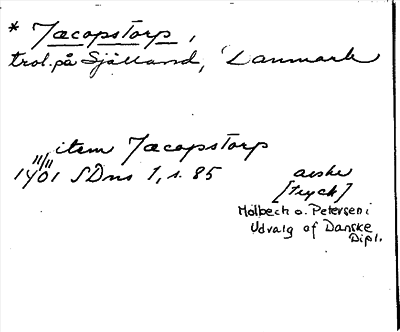 * Jæcopstorp,
trol. på Själland, Danmark
item Jæcopstorp
11/11
1401 SDns 1, s. 85
avskr
[tryck]
Molbech o. Petersen i
Udvalg of Danske
Dipl.